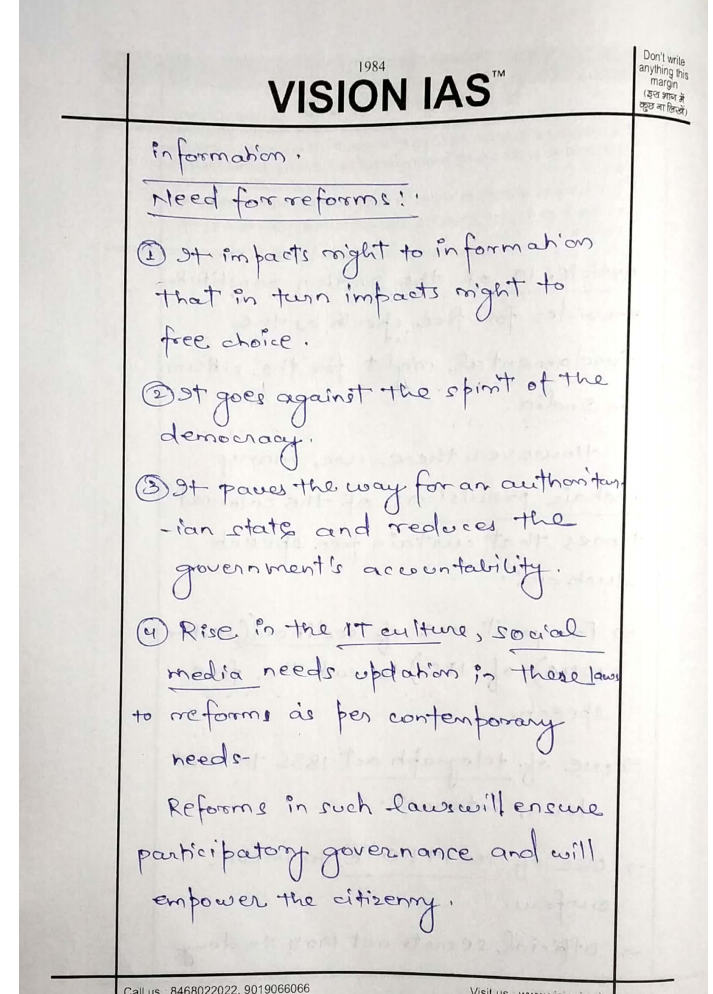 1984
VISION IAS™
Don't write
anything this
margin
(इस भाग में
कुछ ना लिखें)
information.
Need for reforms:
① It impacts right to information
that in turn impacts right to
free choice.
② It goes against the spirit of the
democracy.
③ It paves the way for an authoritar-
-ian state and reduces the
government's accountability.
④ Rise in the IT culture, social
media needs updation in these laws
to reforms as per contemporary
needs-
Reforms in such laws will ensure
participatory governance and will
empower the citizenry.
Call us : 8468022022, 9019066066
Visit us :